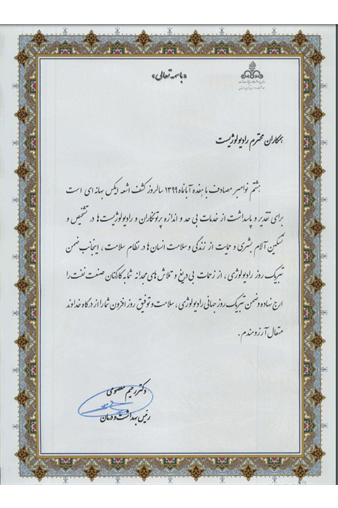 «باسمه تعالی»
همکاران محترم رادیولوژیست
هشتم نوامبر مصادف با هفده آبانماه ۱۳۹۹ سالروز کشف اشعه ایکس بهانه ای است
برای تقدیر و پاسداشت از خدمات بی حد و اندازه پرتوکاران و رادیولوژیست ها در تشخیص و
تسکین آلام بشری و حمایت از زندگی و سلامت انسان ها در نظام سلامت ، اینجانب ضمن
تبریک روز رادیولوژی ، از زحمات بی دریغ و تلاش های مجدانه شما به کارکنان صنعت نفت را
ارج نهاده و ضمن تبریک روز جهانی رادیولوژی ، سلامت و توفیق روز افزون شما را از درگاه خداوند
متعال آرزومندم .
دکتر رحیم معصومی
رئیس بهداشت و درمان